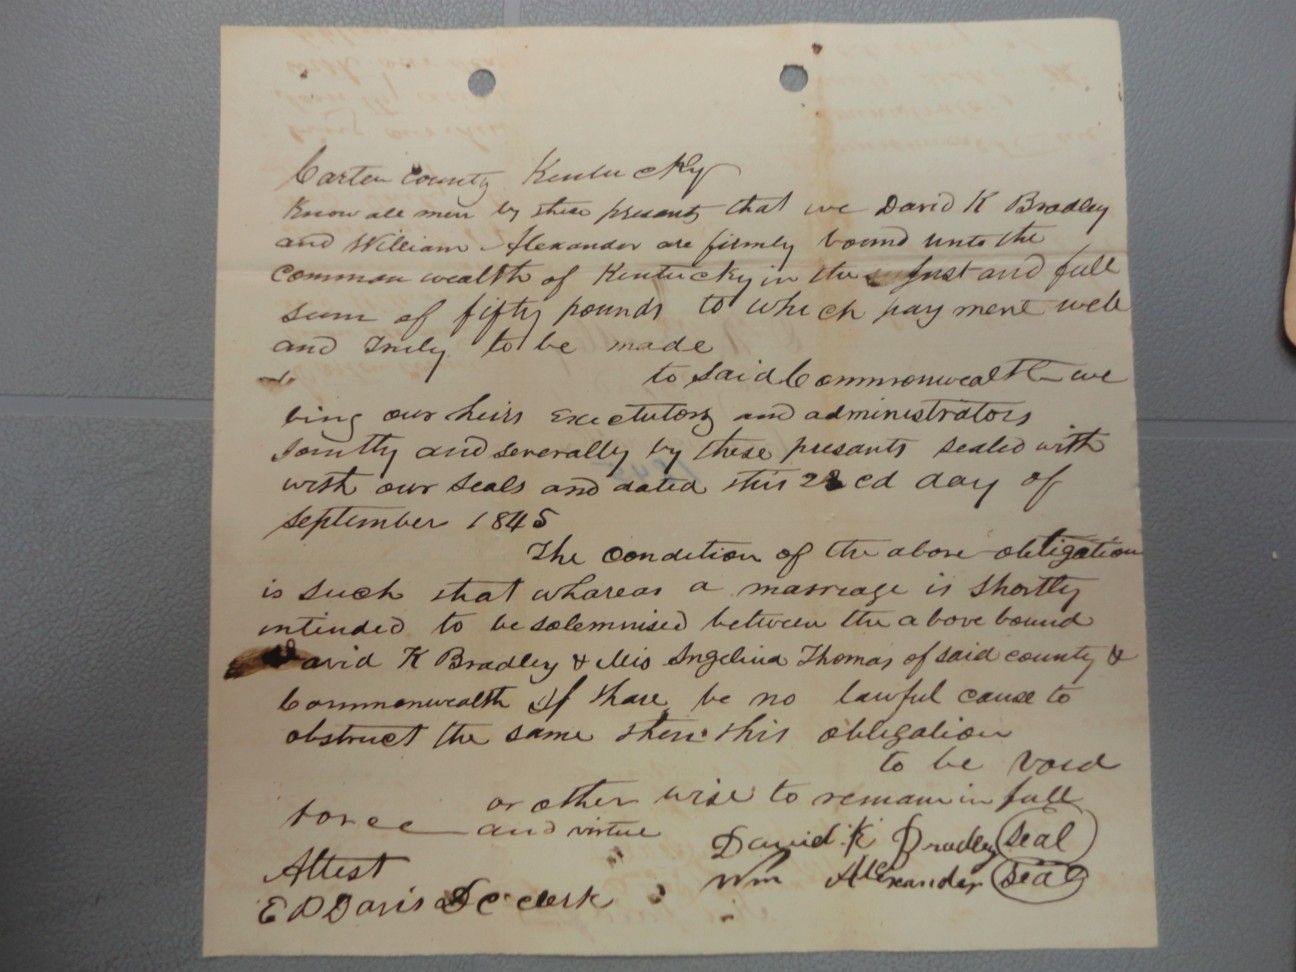 Carter county Kentucky
Know all men by these presents that we David K Bradley
and William Alexander are firmly bound unto the
Common wealth of Kentucky in the Just and full
sum of fifty pounds to which pay ment well
and Truly to be made
to said Commonwealth we
bing our heirs Exectutors and administrators
Jointly and severally by these presants sealed with
with our seals and dated this 22 cd day of
September 1845
The condition of the above obligation
is such that whareas a marriage is shortly
intended to be solemnised between the above bound
David K Bradley & Miss Angelina Thomas of said county &
Commonwealth If thare be no lawful cause to
obstruct the same then this obligation
to be void
or other wise to remain in full
force and virtue
David K Bradley seal
Attest
Wm Alexander seal
E D Davis D C clerk